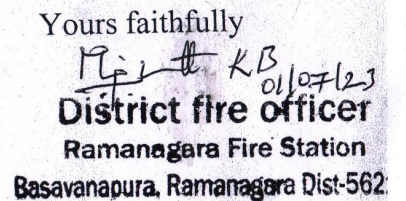 Yours faithfully
KB
01/07/23
District fire officer
Ramanagara Fire Station
Basavanapura, Ramanagara Dist-562